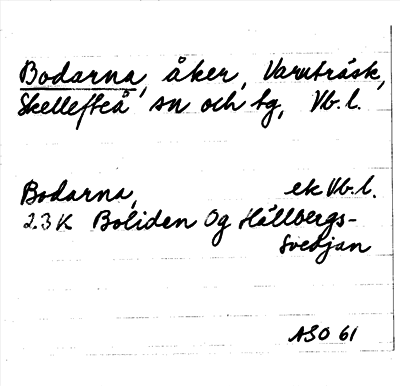 Bodarna, åker, Varuträsk,
Skellefteå sn och tg, Vb.l.
Bodarna, ek Vb.l.
23K Boliden Og Hällbergs-
svedjan
ASO 61